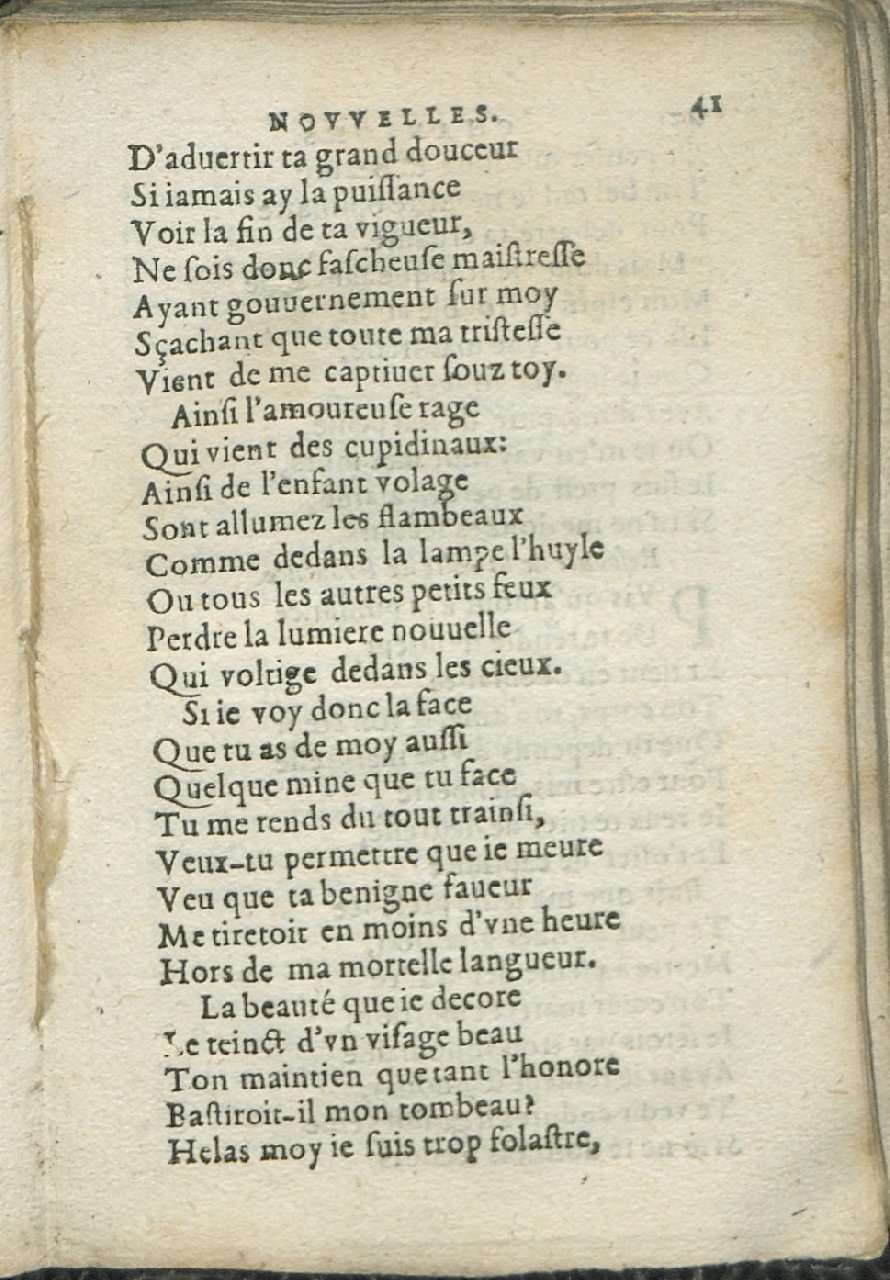 NOVVELLES. 41
D'aduertir ta grand douceur
Si iamais ay la puiſſance
Voir la fin de ta vigueur,
Ne ſois donc faſcheuſe maiſtreſſe
Ayant gouuernement ſur moy
Sçachant que toute ma triſteſſe
Vient de me captiuer ſouz toy.
Ainſi l'amoureuſe rage
Qui vient des cupidinaux:
Ainſi de l'enfant volage
Sont allumez les flambeaux
Comme dedans la lampe l'huyle
Ou tous les autres petits feux
Perdre la lumiere nouuelle
Qui voltige dedans les cieux.
Si ie voy donc la face
Que tu as de moy auſſi
Quelque mine que tu face
Tu me rends du tout trainſi,
Veux-tu permettre que ie meure
Veu que ta benigne faueur
Me tiretoit en moins d'vne heure
Hors de ma mortelle langueur.
La beauté que ie decore
Le teinct d'vn viſage beau
Ton maintien que tant l'honore
Baſtiroit-il mon tombeau?
Helas moy ie ſuis trop folaſtre,